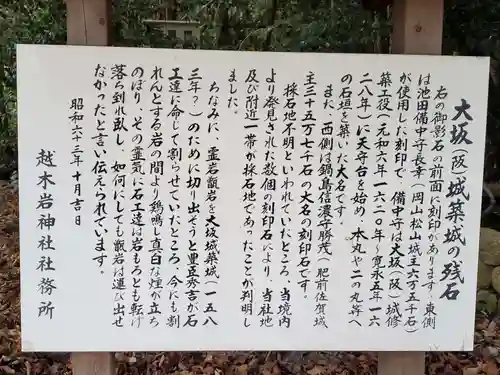 大坂(阪)城築城の残石
右の御影石の前面に刻印があります。東側
は池田備中守長幸(岡山松山城主六万五千石)
が使用した刻印で、備中守は大坂(阪)城修
築工役(元和六年一六二〇年~寛永五年一六
二八年)に天守台を始め、本丸や二の丸等へ
の石垣を築いた大名です。
また、西側は鍋島信濃守勝茂(肥前佐賀城
主三十五万七千石の大名の刻印石です。
採石地不明といわれていたところ、当境内
より発見された数個の刻印石により、当社地
及び附近一帯が採石地であったことが判明し
ました。
ちなみに、霊岩甑岩を大坂城築城(一五八
三年?)のために切り出そうと豊臣秀吉が石
工達に命じて割らせていたところ、今にも割
れんとする岩の間より鶏鳴し真白な煙が立ち
のぼり、その霊気に石工達は岩もろとも転げ
落ち倒れ臥し、如何にしても甑岩は運び出せ
なかったと言い伝えられています。
昭和六十三年十月吉日
越木岩神社社務所